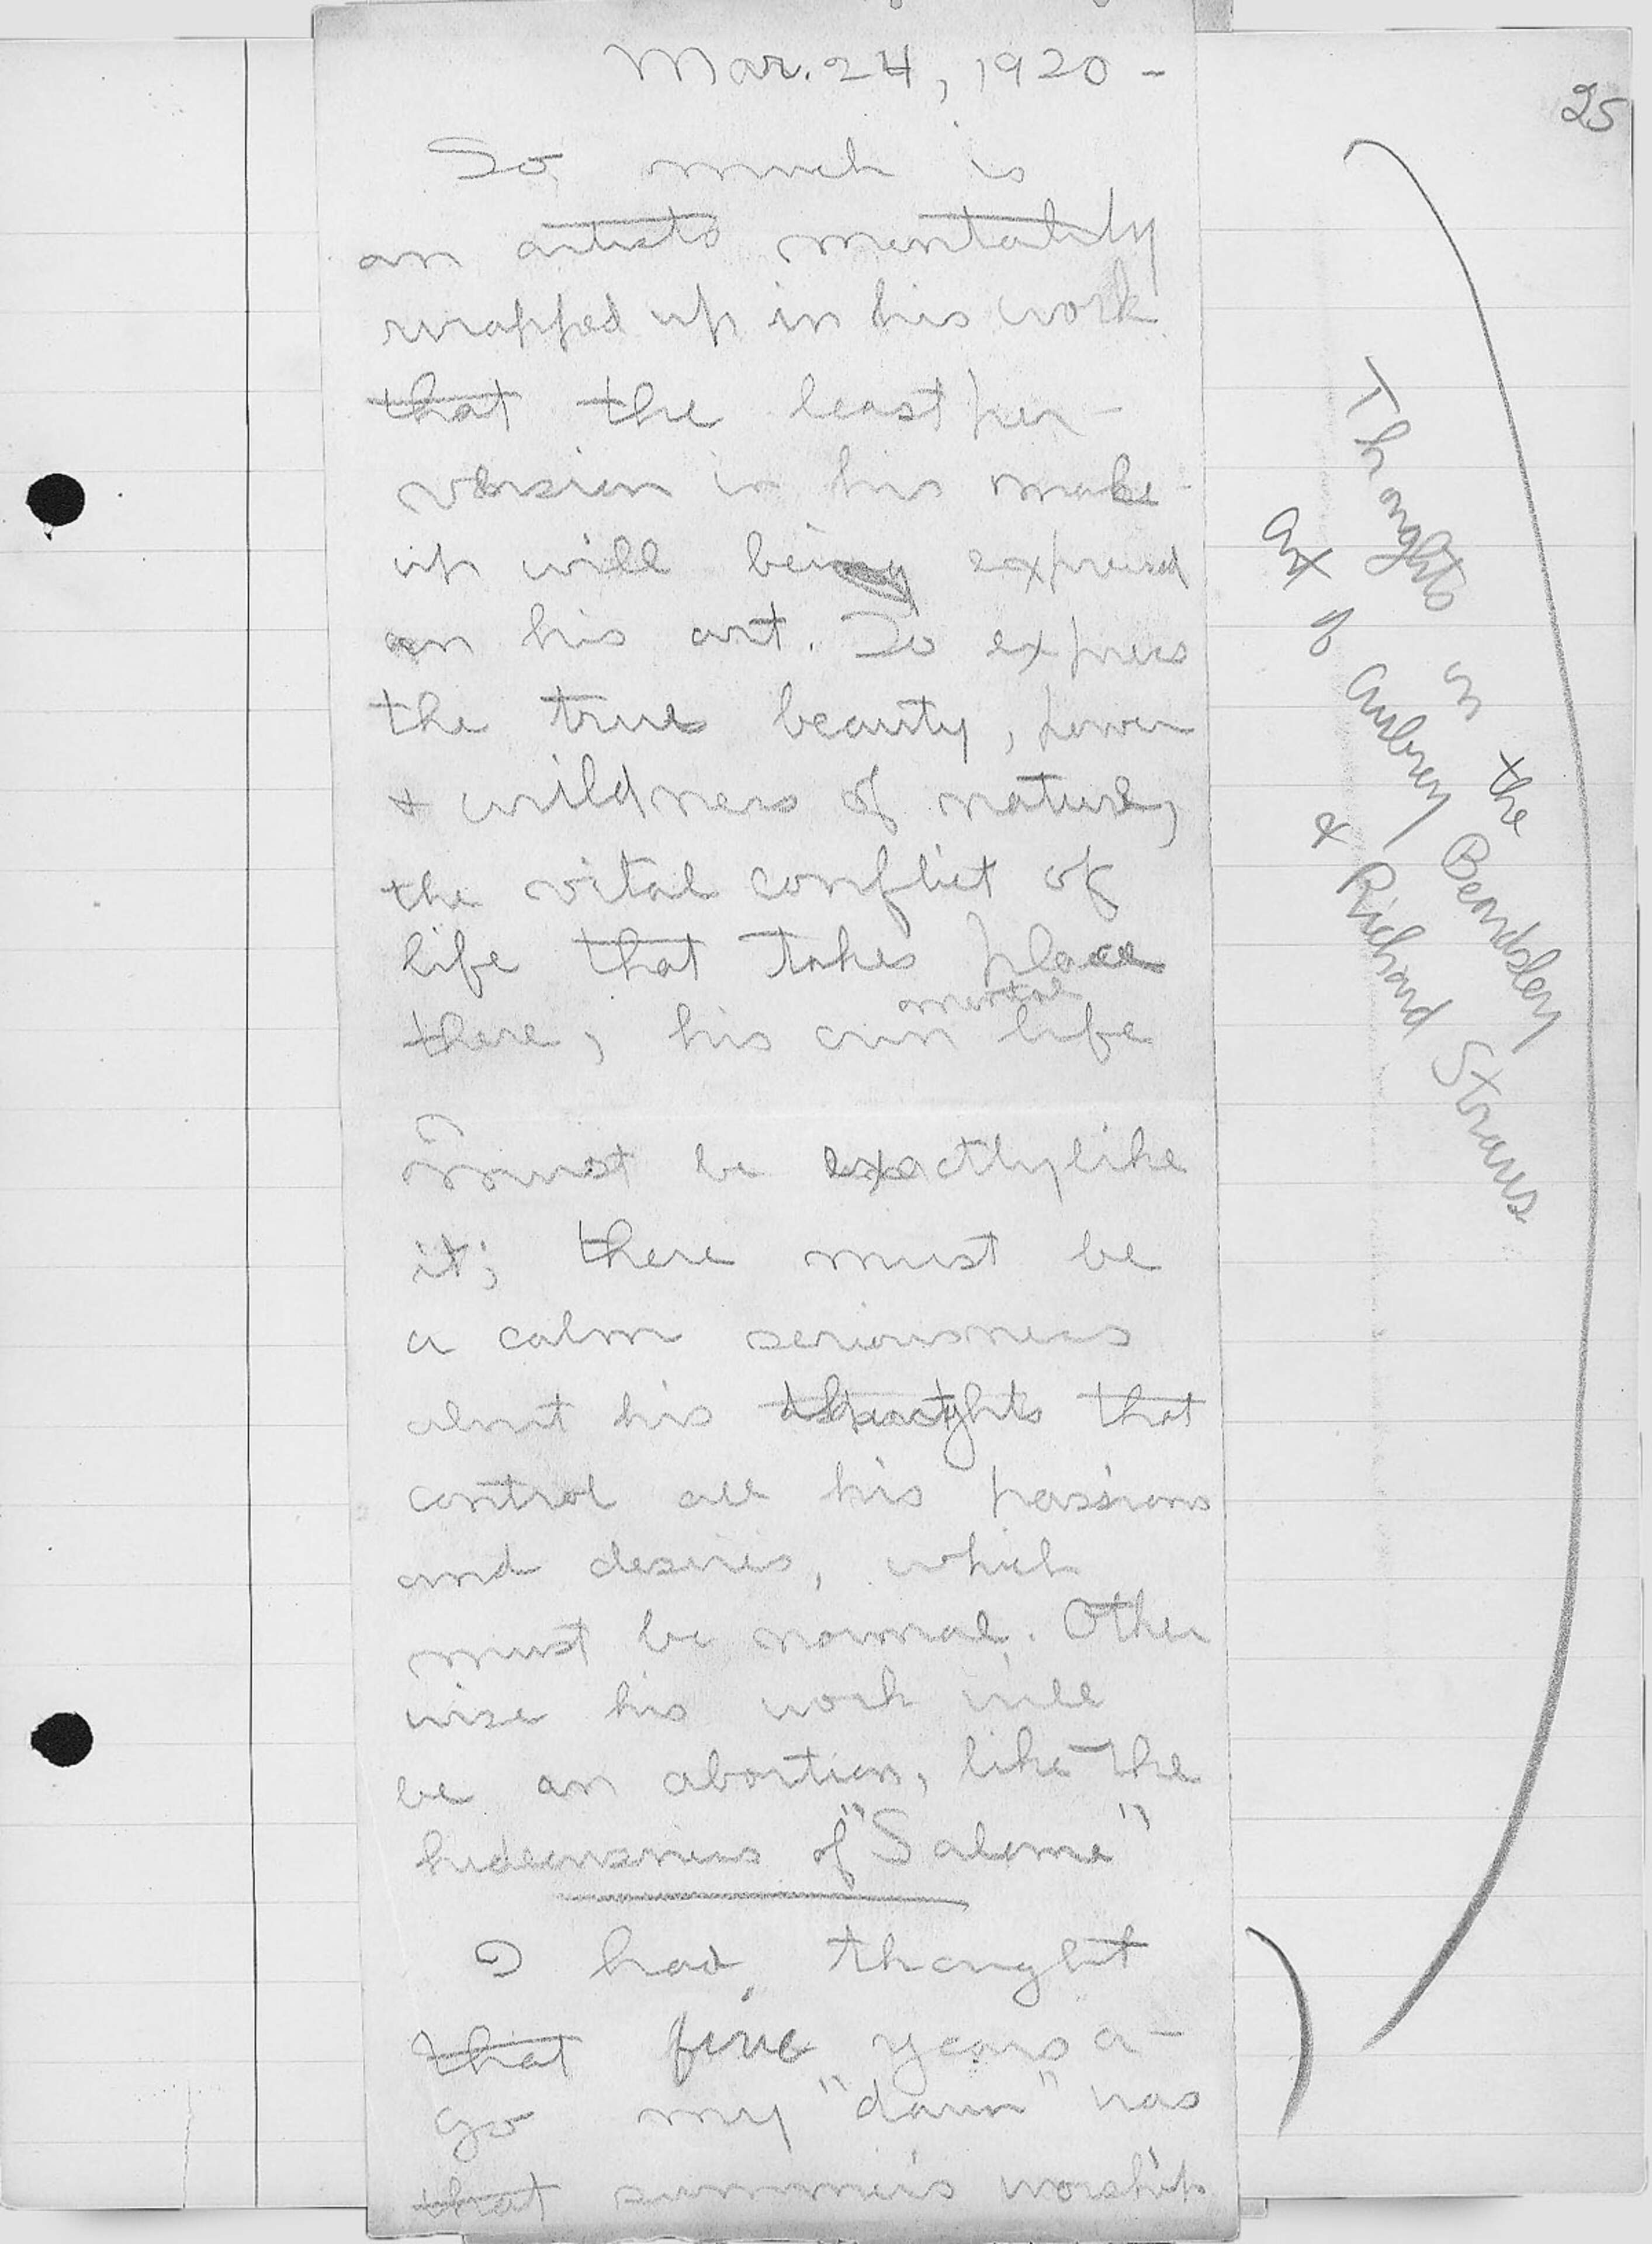 Mar. 24, 1920 -
25
So much is
an artists mentality
wrapped up in his work
that the least per-
version in his make-
up will being expressed
in his art. To express
the true beauty, power
& wildness of nature,
the vital conflict of
life that takes place
there, his own mental life
must be exactly like
it; there must be
a calm seriousness
about his thoughts that
control all his passions
and desires, which
must be normal. Other
wise his work will
be an abortion, like the
hideousness of "Salome"
I had thought
that five years a-
go my "dawn" was
that summer's worship
Thoughts on the
art of Aubrey Beardsley
& Richard Strauss